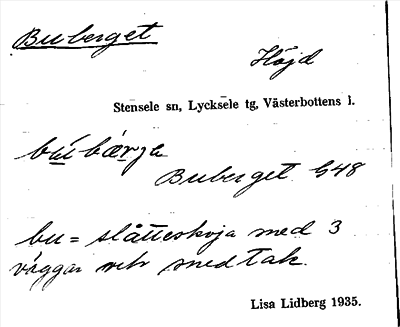 Buberget
Höjd
Stensele sn, Lycksele tg, Västerbottens l.
Buberget G48
bu = slåtteskoja med 3
väggar och snedtak.
Lisa Lidberg 1935.